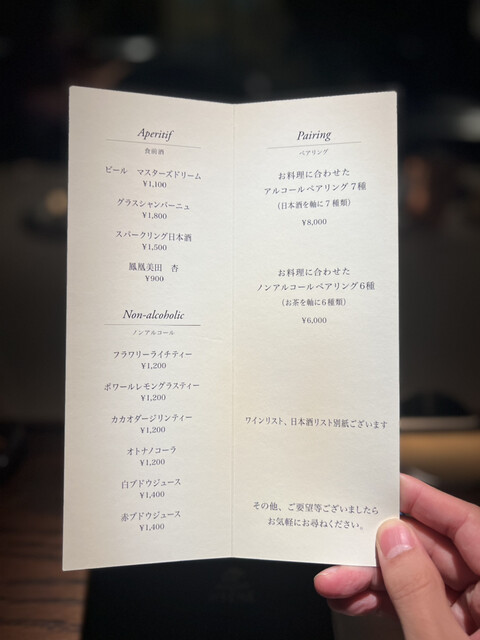 Aperitif
食前酒
ビール　マスターズドリーム
¥1,100
グラスシャンパーニュ
¥1,800
スパークリング日本酒
¥1,500
鳳凰美田　杏
¥900
Non-alcoholic
ノンアルコール
フラワリーライチティー
¥1,200
ポワールレモングラスティー
¥1,200
カカオダージリンティー
¥1,200
オトナノコーラ
¥1,200
白ブドウジュース
¥1,400
赤ブドウジュース
¥1,400
Pairing
ペアリング
お料理に合わせた
アルコールペアリング７種
（日本酒を軸に７種類）
¥8,000
お料理に合わせた
ノンアルコールペアリング６種
（お茶を軸に６種類）
¥6,000
ワインリスト、日本酒リスト別紙ございます
その他、ご要望等ございましたら
お気軽にお尋ねください。